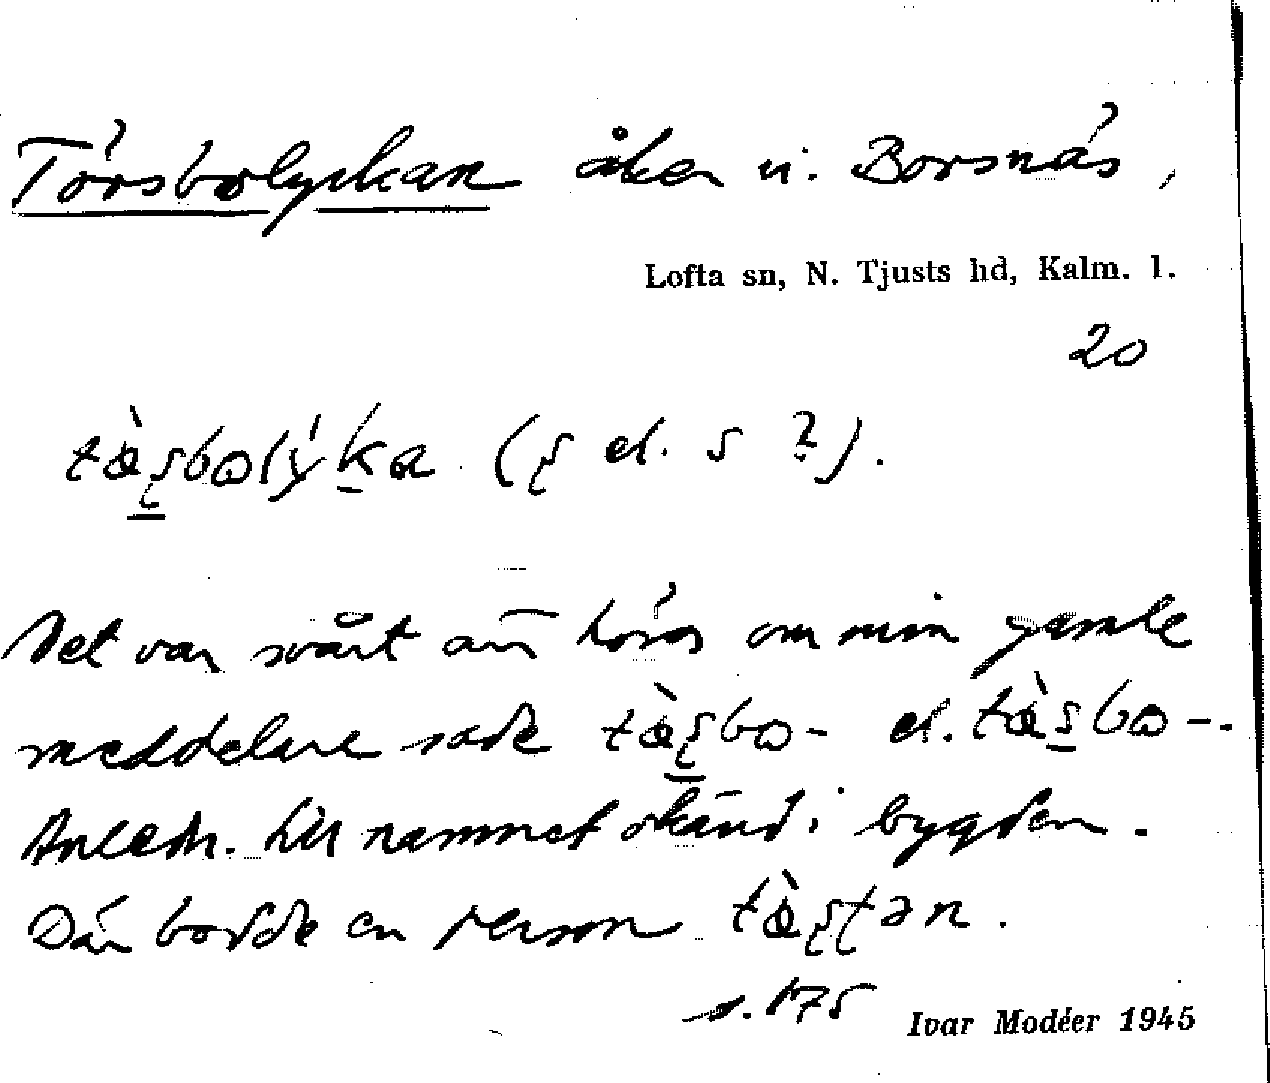 Törsbolyckan åker v. Borsnäs,
Lofta sn, N. Tjusts hd, Kalm. l.
20
tœ̀ʂbωlýka (ʂ el. s ?).
Det var svårt att höra om min gamle
meddelare sade tœ̀ʂbω- el. tœ̀sbω-.
Anledn. till namnet okänd i bygden.
Där bodde en person tœ̀ʂʈən.
s. 175
Ivar Modéer 1945